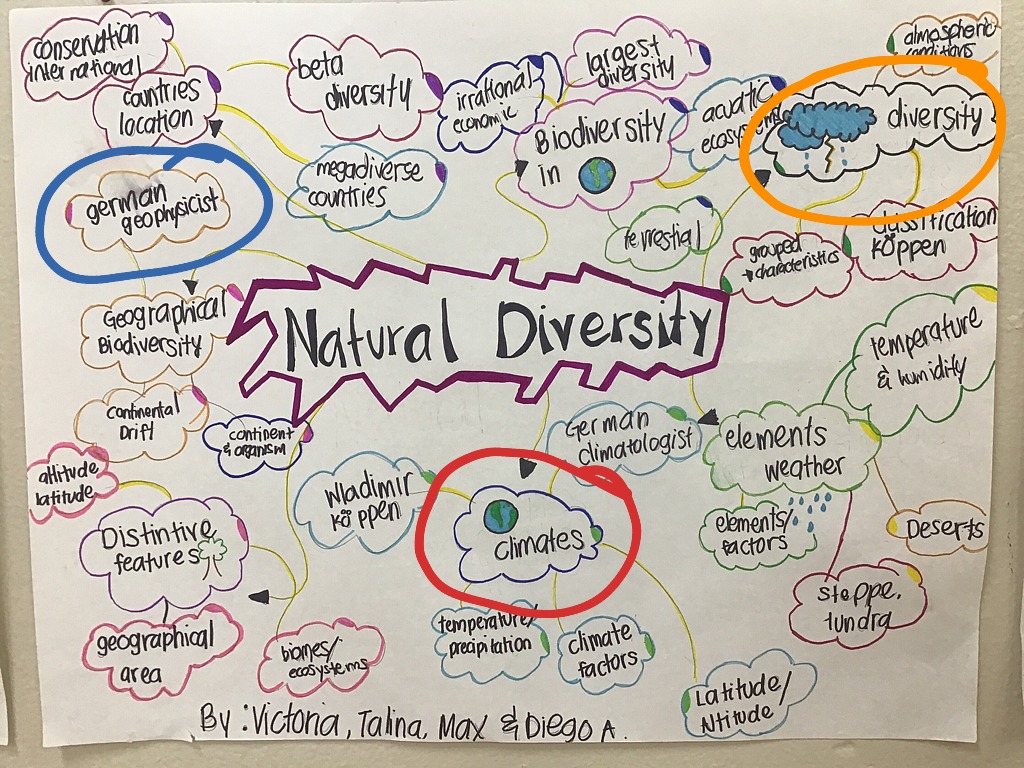 conservation
international
countries
location
beta
diversity
megadiverse
countries
irrational
economic
largest
diversity
Biodiversity
in
acuatic
ecosystems
terrestial
atmospheric
conditions
diversity
grouped
characteristics
classification
köppen
german
geophysicist
Geographical
Biodiversity
Continental
Drift
continent
& organism
Natural Diversity
temperature
& humidity
altitude
latitude
Distintive
features
geographical
area
biomes/
ecosystems
Wladimir
köppen
German
climatologist
climates
temperature/
precipitation
climate
factors
Latitude/
Altitude
elements
weather
elements/
factors
Deserts
steppe,
tundra
By: Victoria, Talina, Max & Diego A.